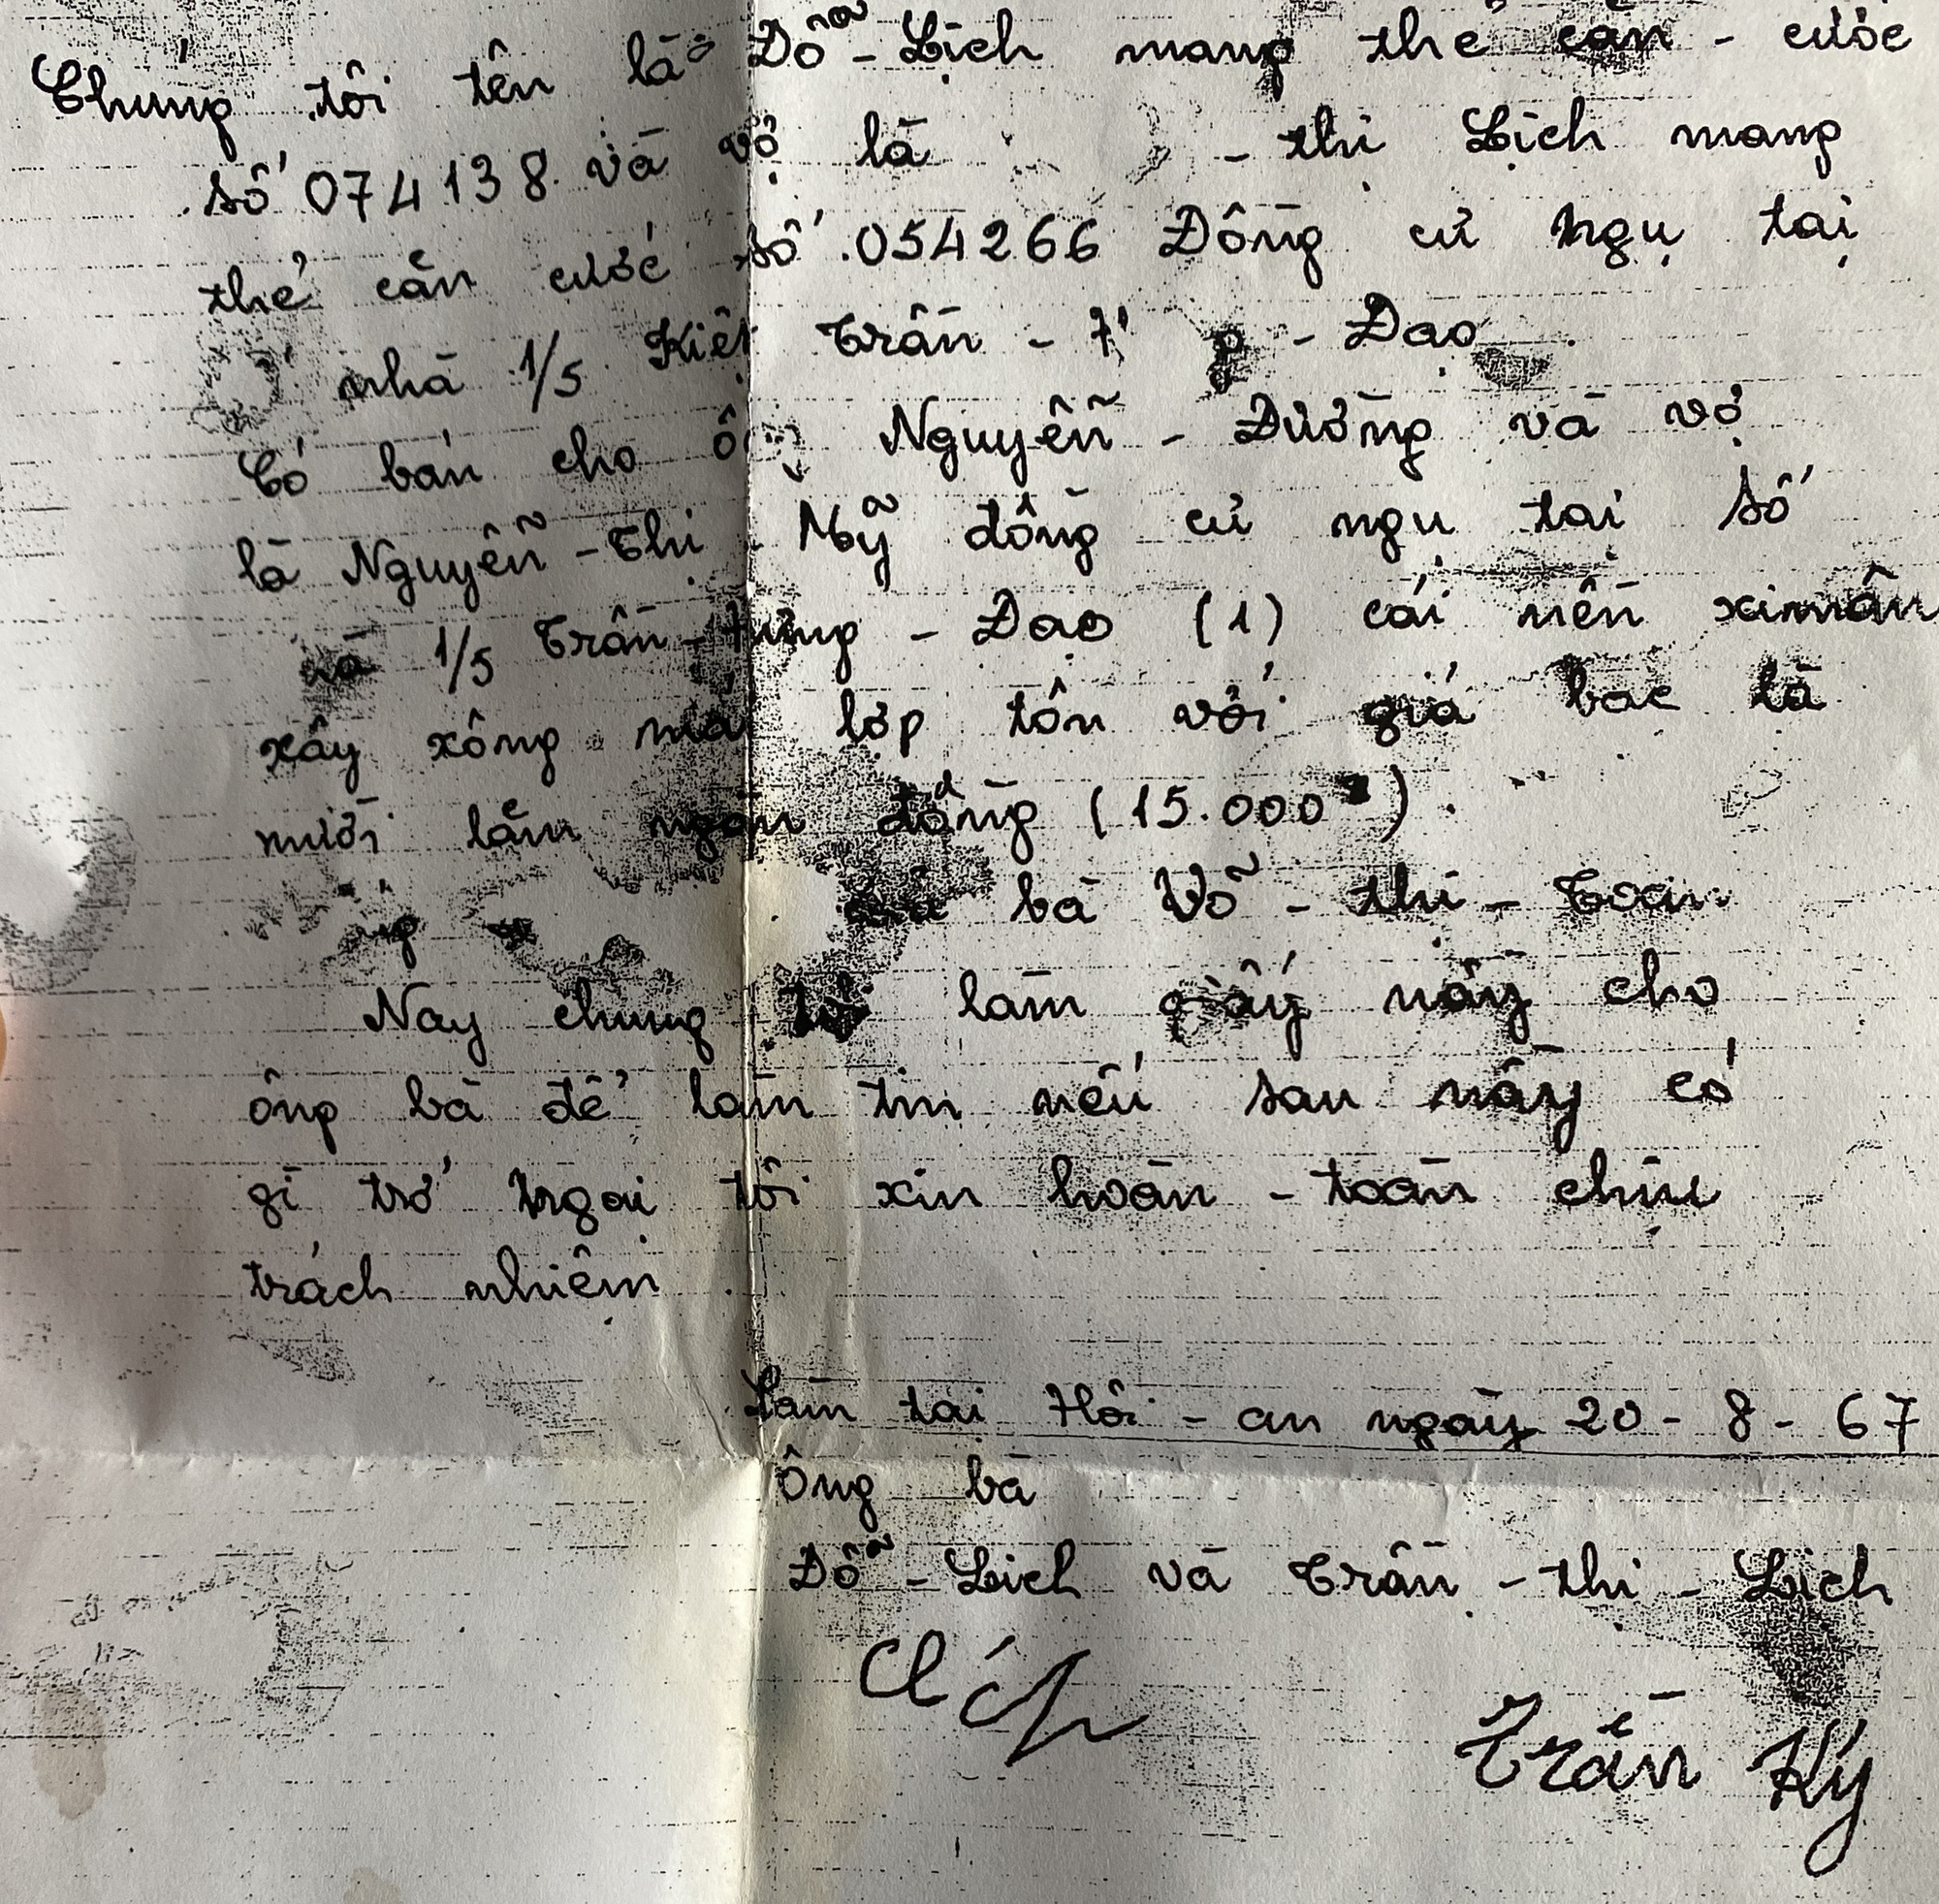 Chúng tôi tên là Đỗ - Lịch mang thẻ căn - cước
số 074138 và vợ là - thị Lịch mang
thẻ căn cước số 054266 Đồng cư ngụ tại
Ở nhà 1/5 Kiệt Trần - - Đạo
Có bán cho Nguyễn - Đường và vợ
là Nguyễn - Thị Mỹ đồng cư ngụ tại số
1/5 Trần - Hưng - Đạo (1) cái nền ximăn
xây xông mái lợp tôn với giá bac là
mười lăm ngàn đồng (15.000đ).
bà Võ - thị - Toàn
Nay chúng tôi làm giấy nầy cho
ông bà để làm tin nếu sau nầy có
gì trở ngại tôi xin hoàn - toàn chịu
trách nhiệm.
Làm tại Hội - an ngày 20 - 8 - 67
Ông bà
Đỗ - Lich và Trần - thị - Lich
Trần Ký